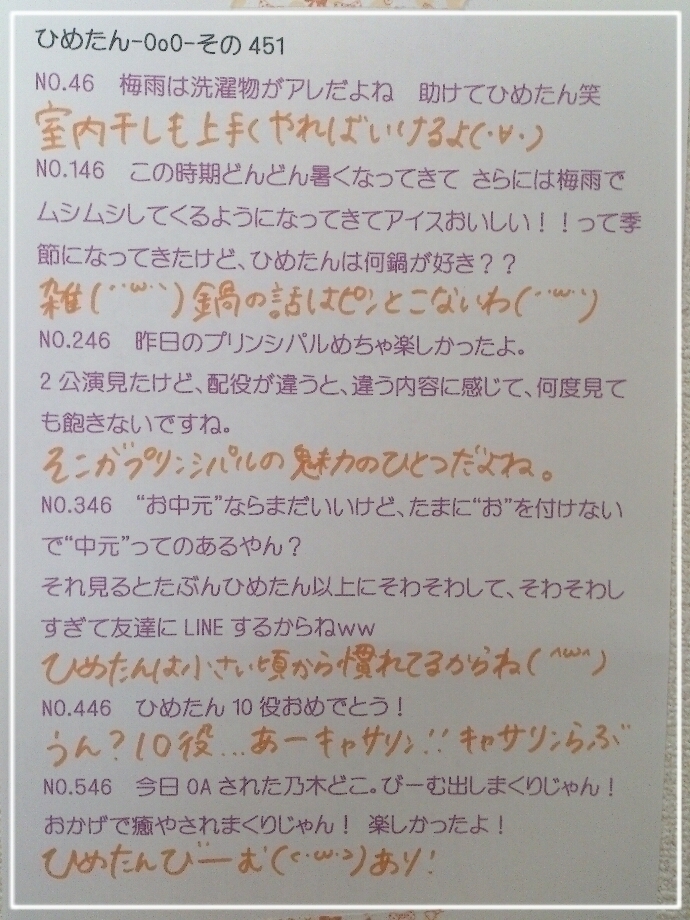 ひめたん-OoO-その451
NO.46　梅雨は洗濯物がアレだよね　助けてひめたん笑
室内干しも上手くやればいけるよ(・∀・)
NO.146　この時期どんどん暑くなってきて さらには梅雨で
ムシムシしてくるようになってきてアイスおいしい！！って季
節になってきたけど、ひめたんは何鍋が好き？？
雑(´･ω･`)鍋の話はピンとこないわ(´･ω･`)
NO.246　昨日のプリンシパルめちゃ楽しかったよ。
２公演見たけど、配役が違うと、違う内容に感じて、何度見て
も飽きないですね。
そこがプリンシパルの魅力のひとつだよね。
NO.346　“お中元”ならまだいいけど、たまに“お”を付けない
で“中元”ってのあるやん？
それ見るとたぶんひめたん以上にそわそわして、そわそわし
すぎて友達にLINEするからねww
ひめたんは小さい頃から慣れてるからね(^ω^)
NO.446　ひめたん10役おめでとう！
うん？10役…あーキャサリン!!キャサリンらぶ
NO.546　今日OAされた乃木どこ。びーむ出しまくりじゃん！
おかげで癒やされまくりじゃん！ 楽しかったよ！
ひめたんびーむ(c･ω･ɔ)あり!